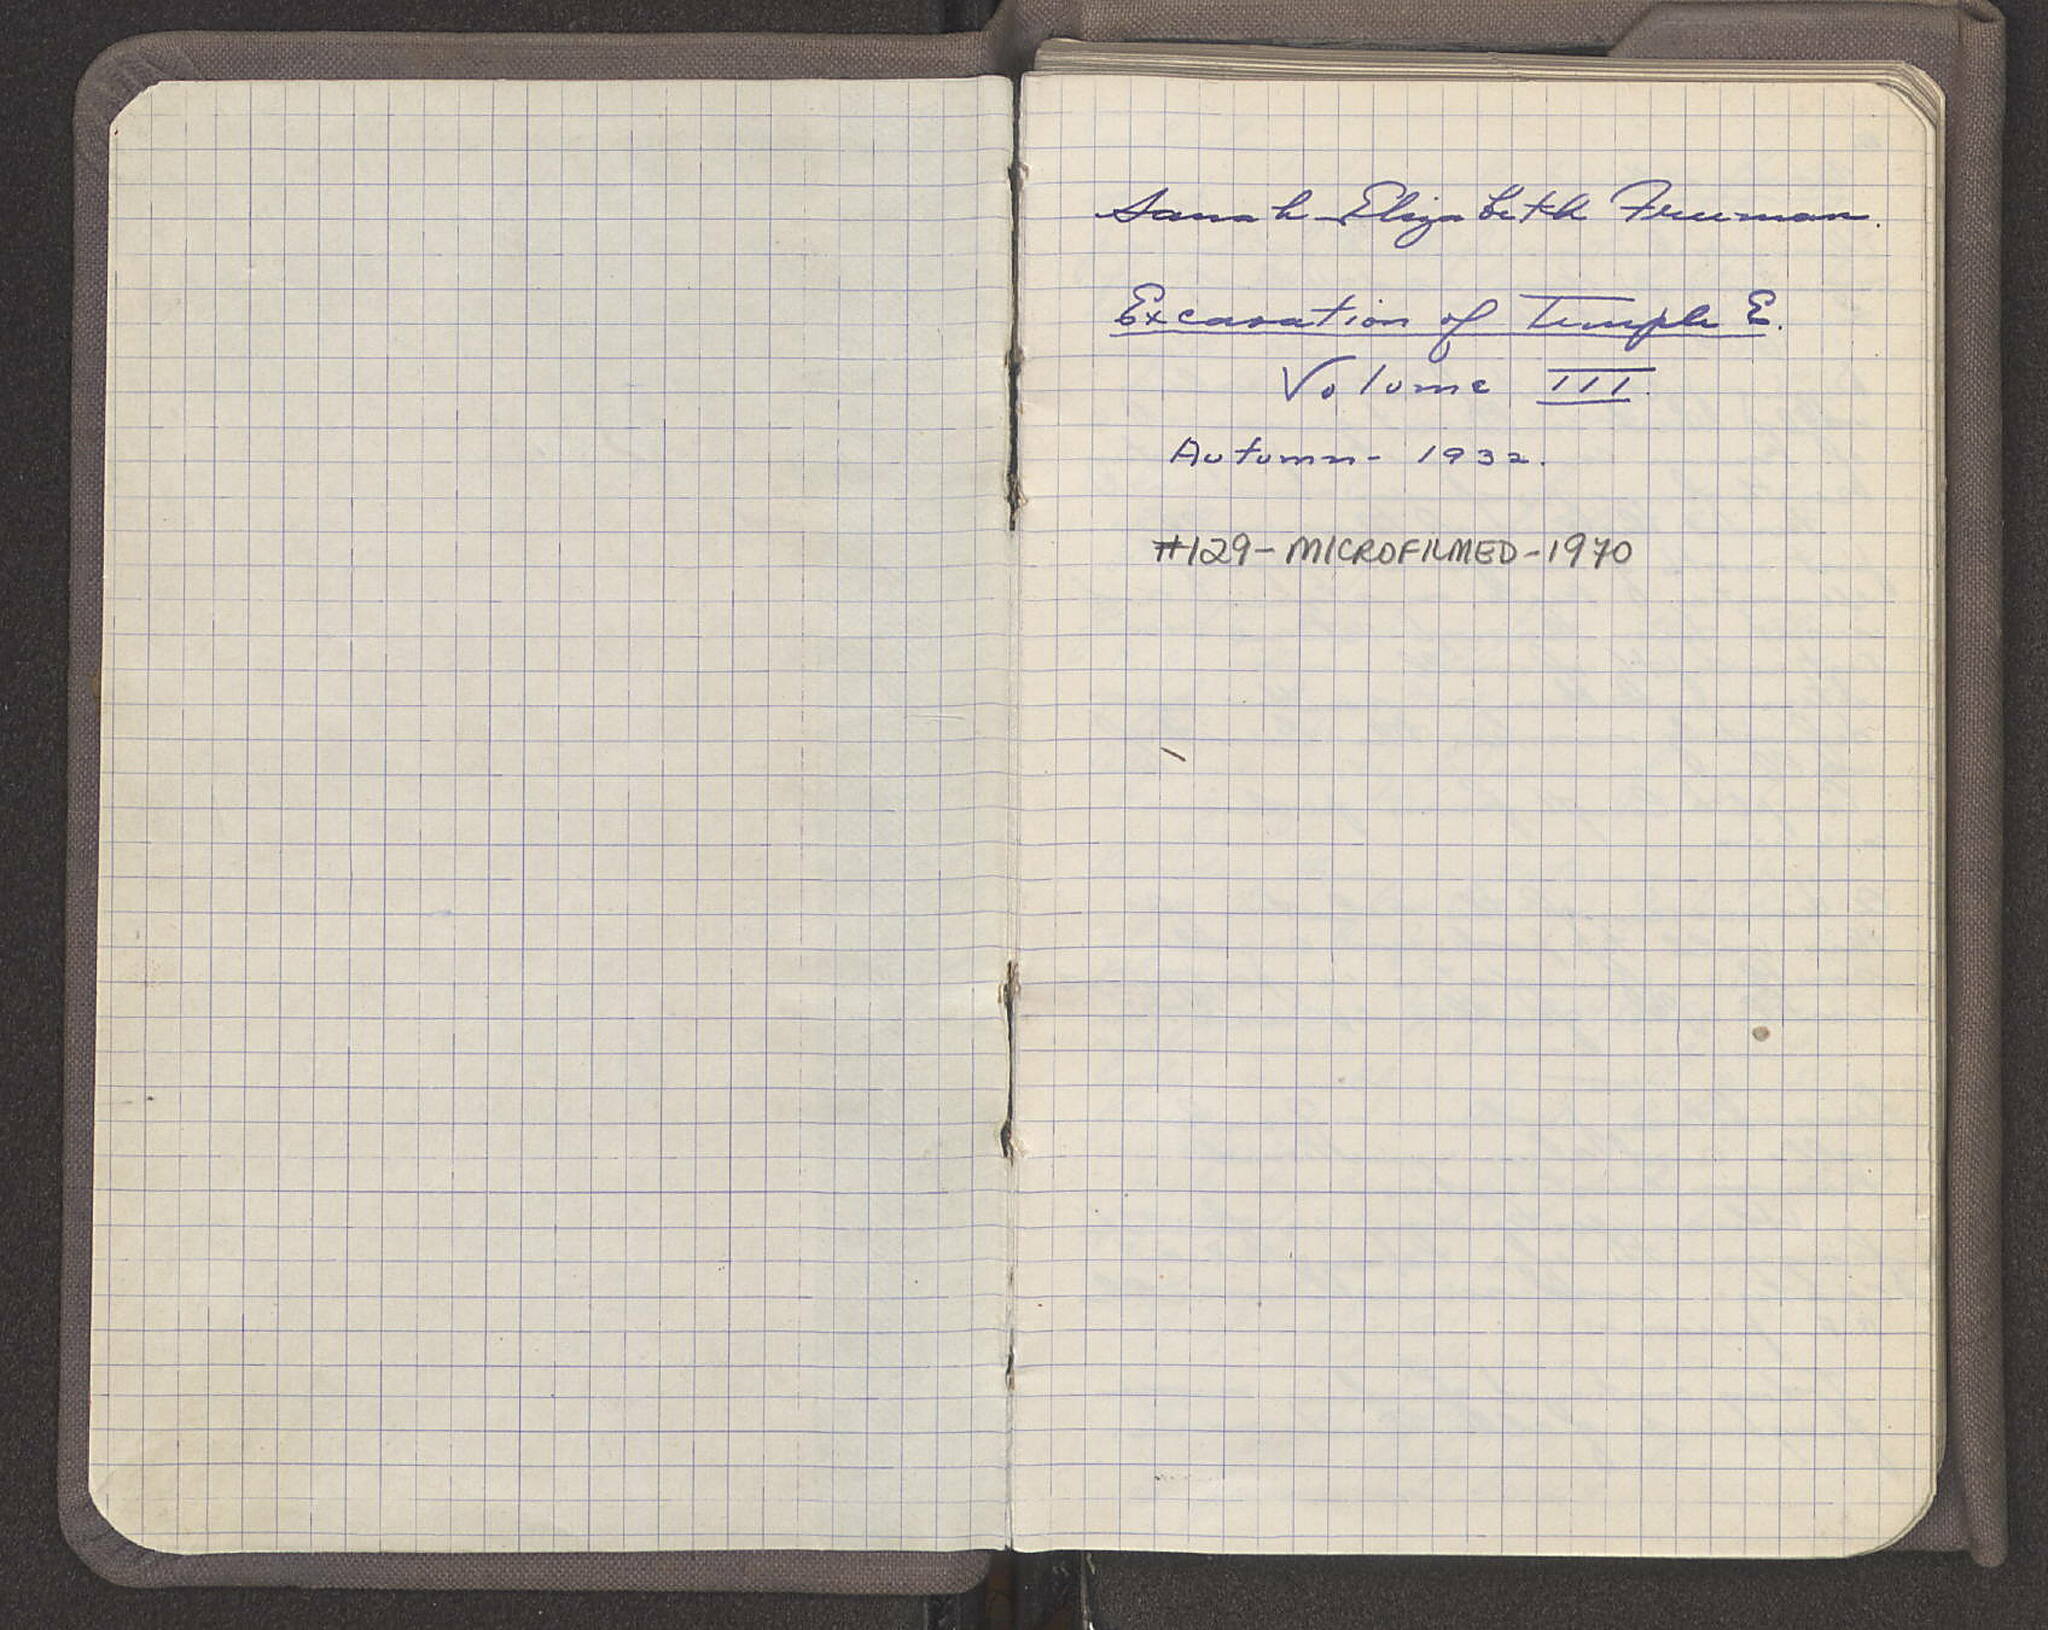 Sarah Elizabeth Freeman.
Excavation of Temple E.
Volume III.
Autumn - 1932.
#129 - MICROFILMED - 1970